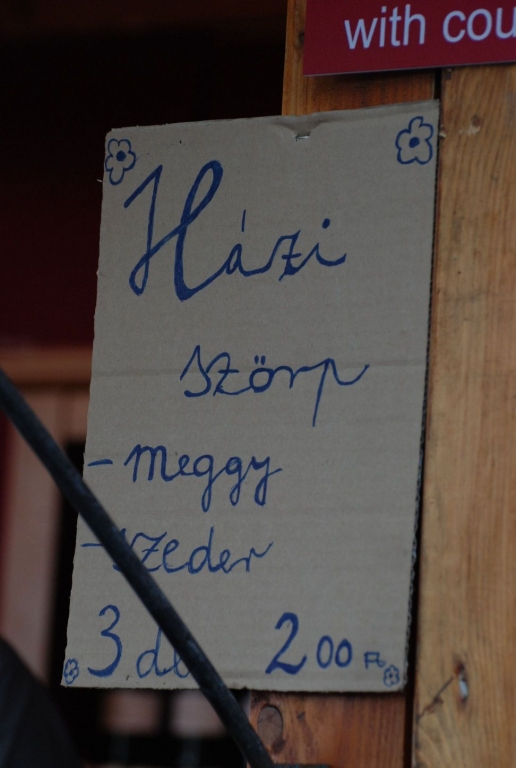 with cou
Házi
szörp
- meggy
- szeder
3 dl 200 Ft